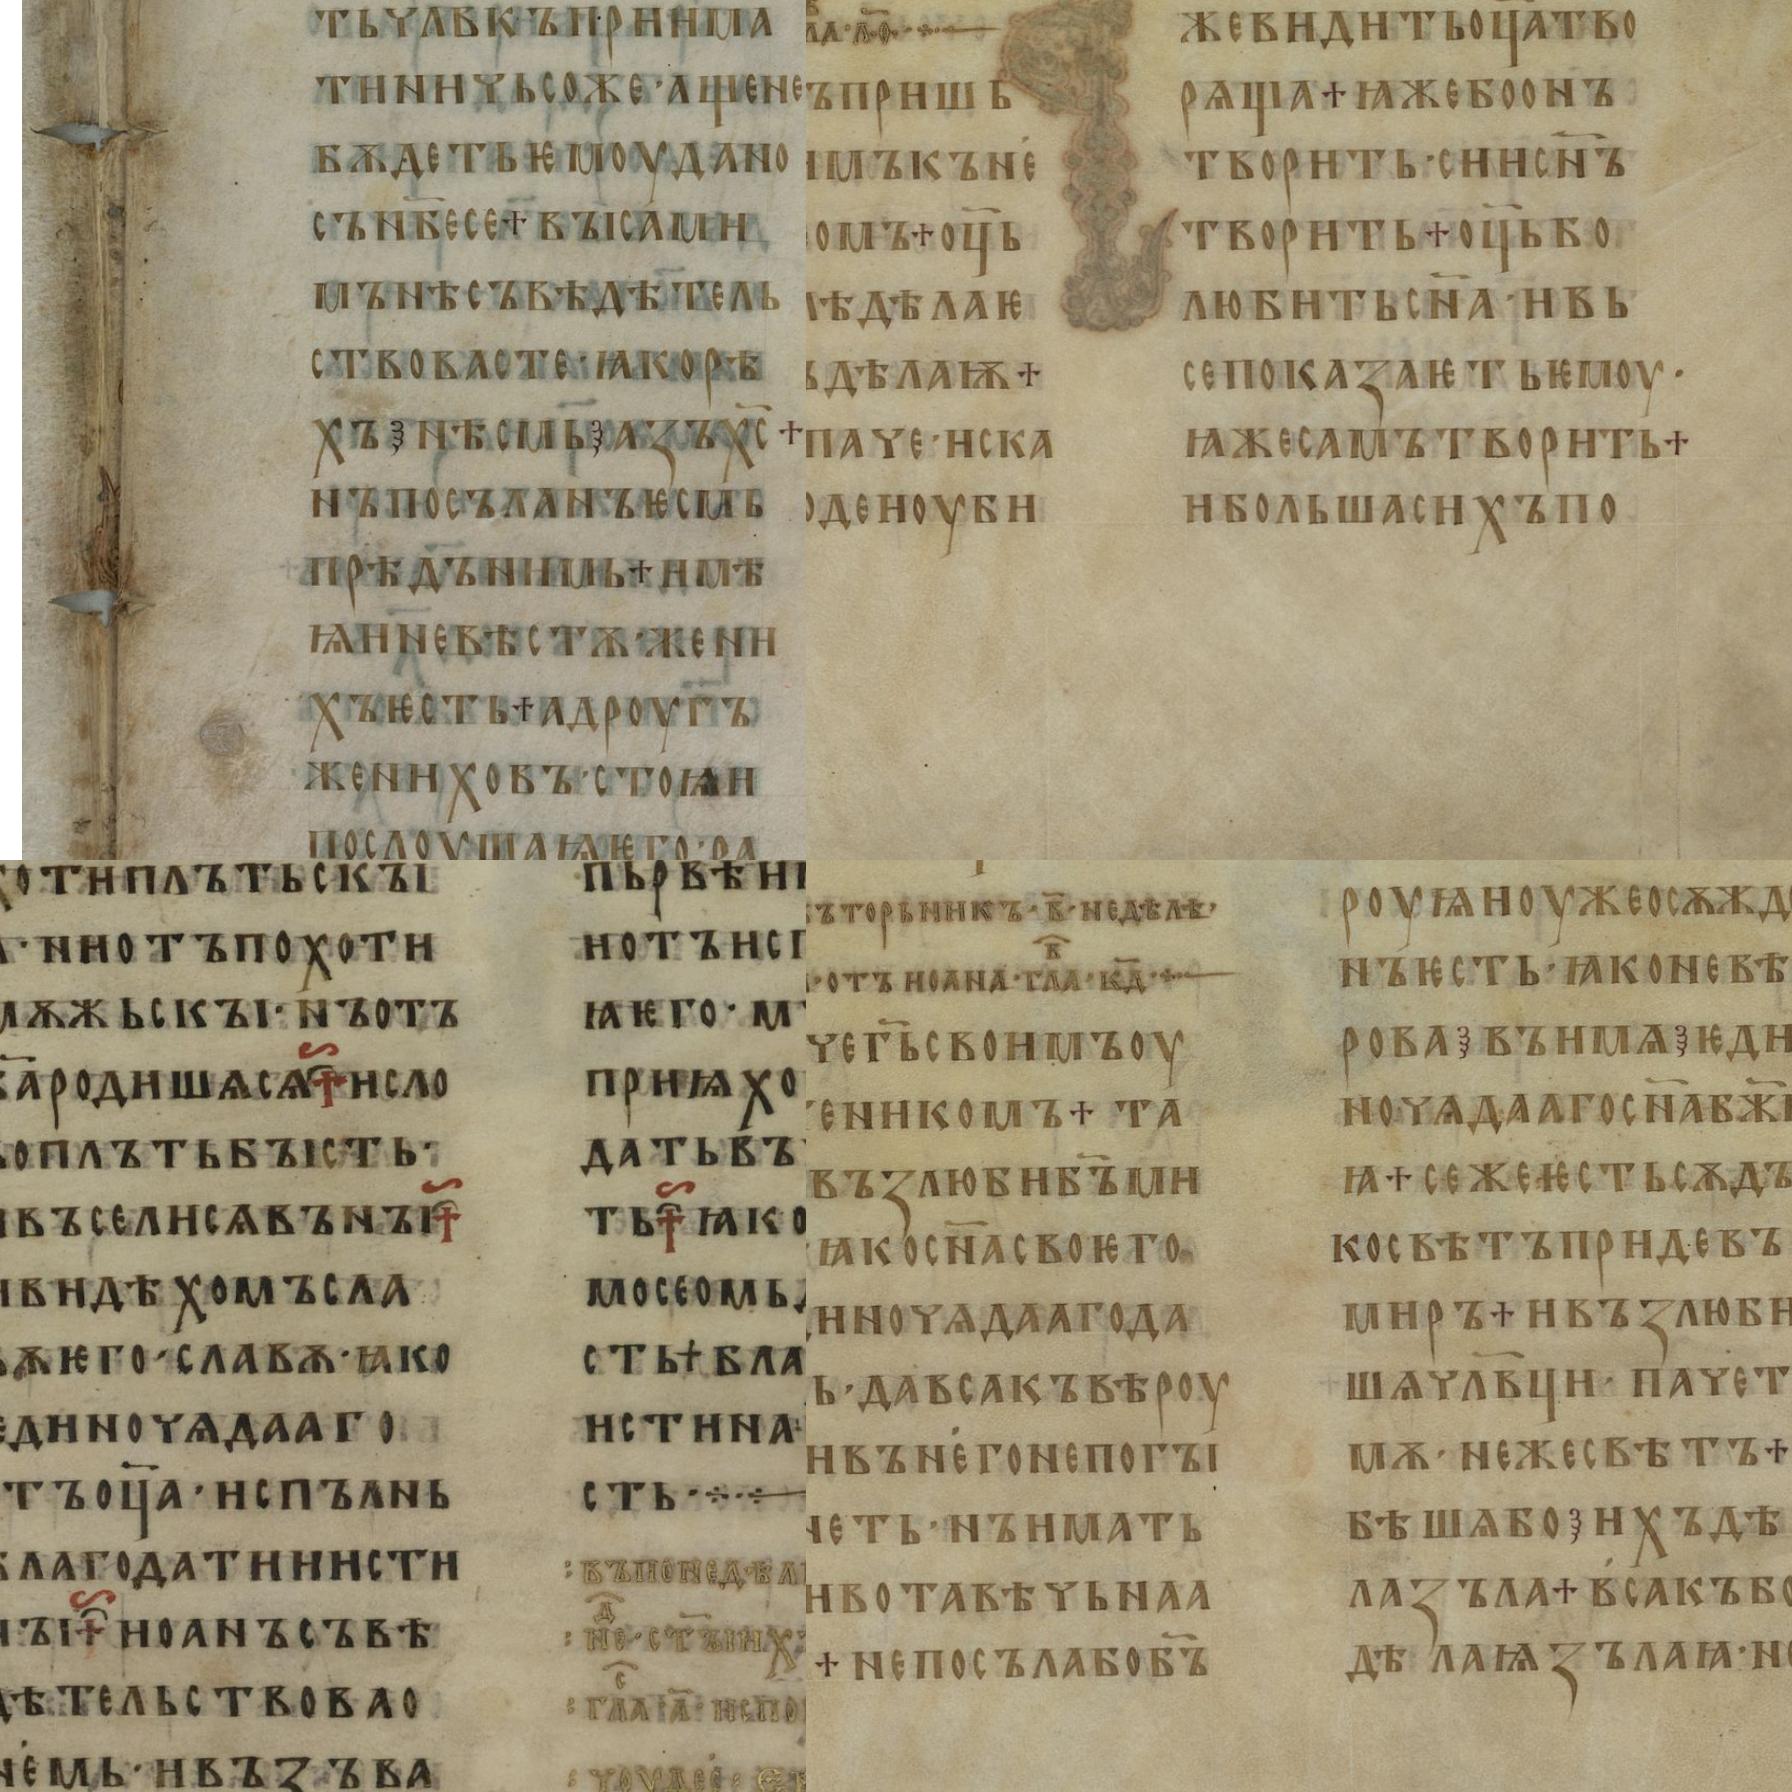 тьчл҃вкъприима
тиничьсоже·ащене
бѫдетьѥмоудано
сън҃бесе+въісами
мънѣсъвѣдѣтель
ствовасте·ꙗкорѣ
хъꙁнѣсмьꙁаꙁъх҃с+
нъпосъланъѥсмь
прѣдънимь+имѣ
ꙗиневѣстѫ·жени
хъѥсть+адроугъ
жениховъ·стоꙗи
послоушаꙗѥго·ра
ъпришь
имъкъне
омъ+оц҃ь
лѣдѣлаѥ
ъдѣлаѭ+
паче·иска
оденоуби
жевидитьоц҃атво
рѧща+ꙗжебоонъ
творить·сиисн҃ъ
творить+оц҃ьбо
любитьсн҃а·ивь
сепоказаѥтьѥмоу·
ꙗжесамътворить+
ибольшасихъпо
хотиплътьскъі
а·ниотъпохоти
мѫжьскъі·нъотъ
б҃ародишѧсѧ+исло
воплътьбъість·
ивъселисѧвънъі+
ивидѣхомъсла
вѫѥго·славѫ·ꙗко
единочѧдааго
тъоц҃а·испълнь
благодатииисти
нъі+иоанъсъвѣ
дѣтельствовао
немь·ивъзъва
пьрвѣи
нотъисп
ꙗѥго·м
приꙗхо
датьвъ
ть+ꙗко
мосеомь
сть+бла
истина
сть·
въпонедѣл
не·ст҃ъіихъ
гла·а·испо
въторьникъ·в·неделѣ·
·отъиоана·гла·кд·
чег҃ьсвоимъоу
еникомъ+та
възлюбиб҃ъми
ꙗкосн҃асвоѥго
иночѧдаагода
ь·давсакъвѣроу
ивънегонепогъі
неть·нъимать
ивотавѣчьнаа
+непосълабоб҃ъ
роуꙗиноужеосѫжд
нъѥсть·ꙗконевѣ
роваꙁвънмѧꙁѥди
ночѧдаагосн҃аб҃жи
ꙗ+сежеѥстьсѫдъ
косвѣтъпридевъ
миръ+ивъзлюби
шѧчл҃вци·пачет
мѫ·нежесвѣтъ+
бѣшѧбоꙁихъдѣ
лазъла+всакъбо
дѣлаꙗзълаꙗ·не